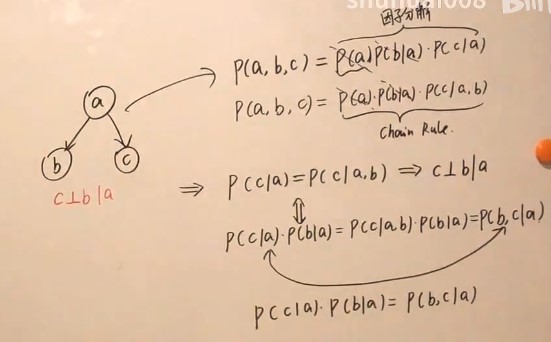 因子分解
P(a,b,c) = P(a)P(b|a)·P(c|a)
P(a,b,c) = P(a)·P(b|a)·P(c|a,b)
Chain Rule.
a
b
c
c⊥b|a
⇒ P(c|a)=P(c|a,b) ⇒ c⊥b|a
⇕
P(c|a)·P(b|a)=P(c|a,b)·P(b|a)=P(b,c|a)
P(c|a)·P(b|a)=P(b,c|a)